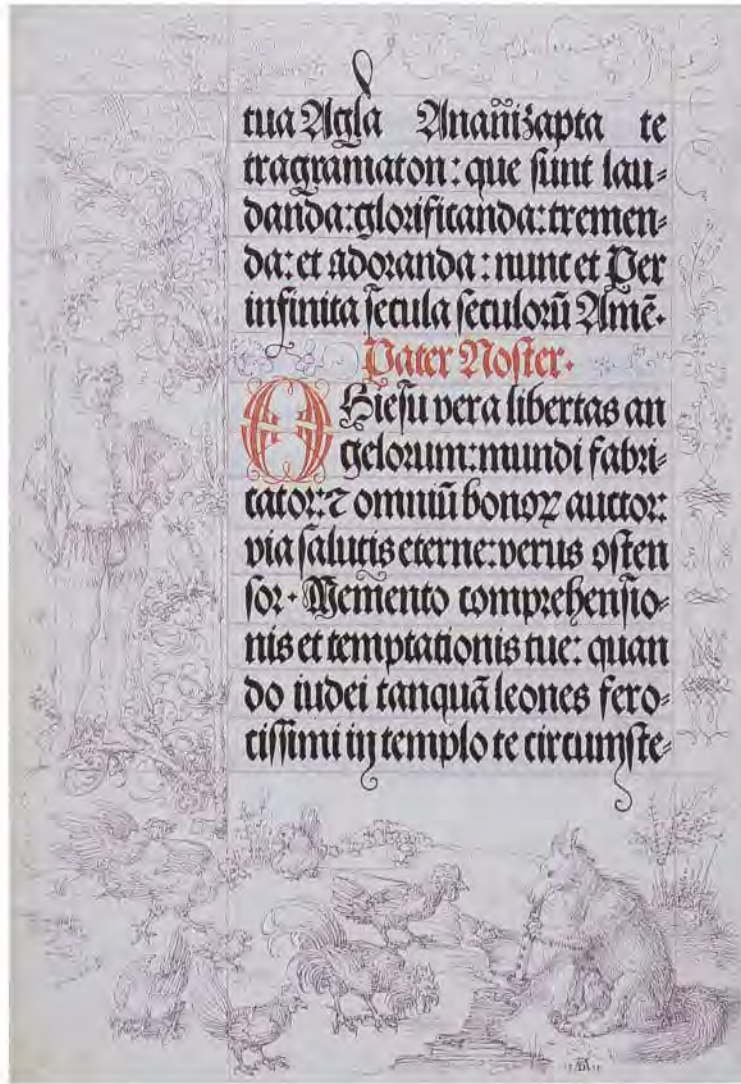 tua Agla Anañizapta te
tragramaton: que sunt lau⸗
danda: glorificanda: tremen⸗
da: et adoranda: nunc et Per
infinita secula seculorū Amē·
Pater Noster·
O Hiesu vera libertas an
gelorum: mundi fabri⸗
cator: ⁊ omniū bonoꝝ auctor:
via salutis eterne: verus osten
sor· Memento comprehensio⸗
nis et temptationis tue: quan
do iudei tanquā leones fero⸗
cissimi in templo te circumste⸗
AD